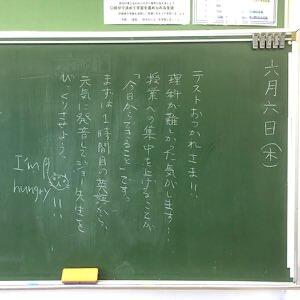 六月六日(木)
テストおつかれさま!!
理科が難しかった気がします…
授業への集中を上げることが
「今日からできること」です。
まずは1時間目の英語から、
元気に発音してジョー先生を
びっくりさせよう。
I'm
hungry
!!